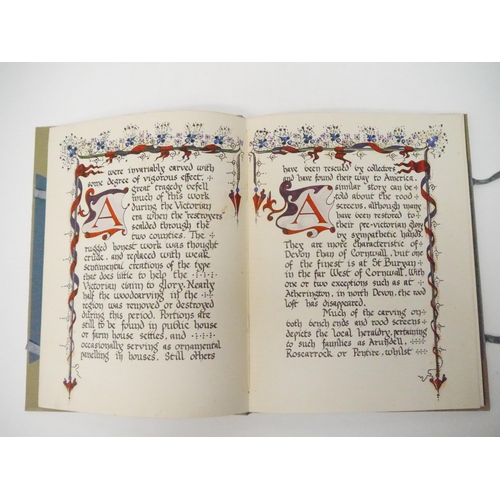 were invariably carved with
some degree of vigorous effect:
A great tragedy befell
much of this work
during the Victorian
era when the 'restorers'
scalded through the
two counties. The
rugged honest work was thought
crude, and replaced with weak
sentimental creations of the type
that does little to help the
Victorian claim to glory. Nearly
half the woodcarving in the
region was removed or destroyed
during this period. Portions are
still to be found in public house
or farm house settles, and
occasionally serving as ornamental
panelling in houses. Still others
have been rescued by collectors
and have found their way to America.
A similar story can be
told about the rood
screens, although many
have been restored to
their pre-victorian glory
by sympathetic hands.
They are more characteristic of
Devon than of Cornwall, but one
of the finest is at St Buryan
in the far West of Cornwall. With
one or two exceptions such as at
Atherington, in north Devon, the rood
loft has disappeared.
Much of the carving on
both bench ends and rood screens
depicts the local heraldry, pertaining
to such families as Arundell,
Roscarrock or Pentire, whilst